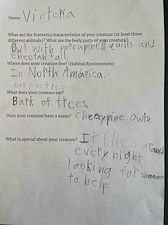 Name: Victoria
What are the features/characteristics of your creature (at least three
different animals)? What are the body parts of your creature?
Owl with porcupine quills and
cheetah tail.
Where does your creature live? (Habitat/Environment)
In North America.
oak pine tree
What does your creature eat?
Bark of trees.
Does your creature have a name? cheetypine owla
What is special about your creature? It flies around
every night
looking for someone
to help.